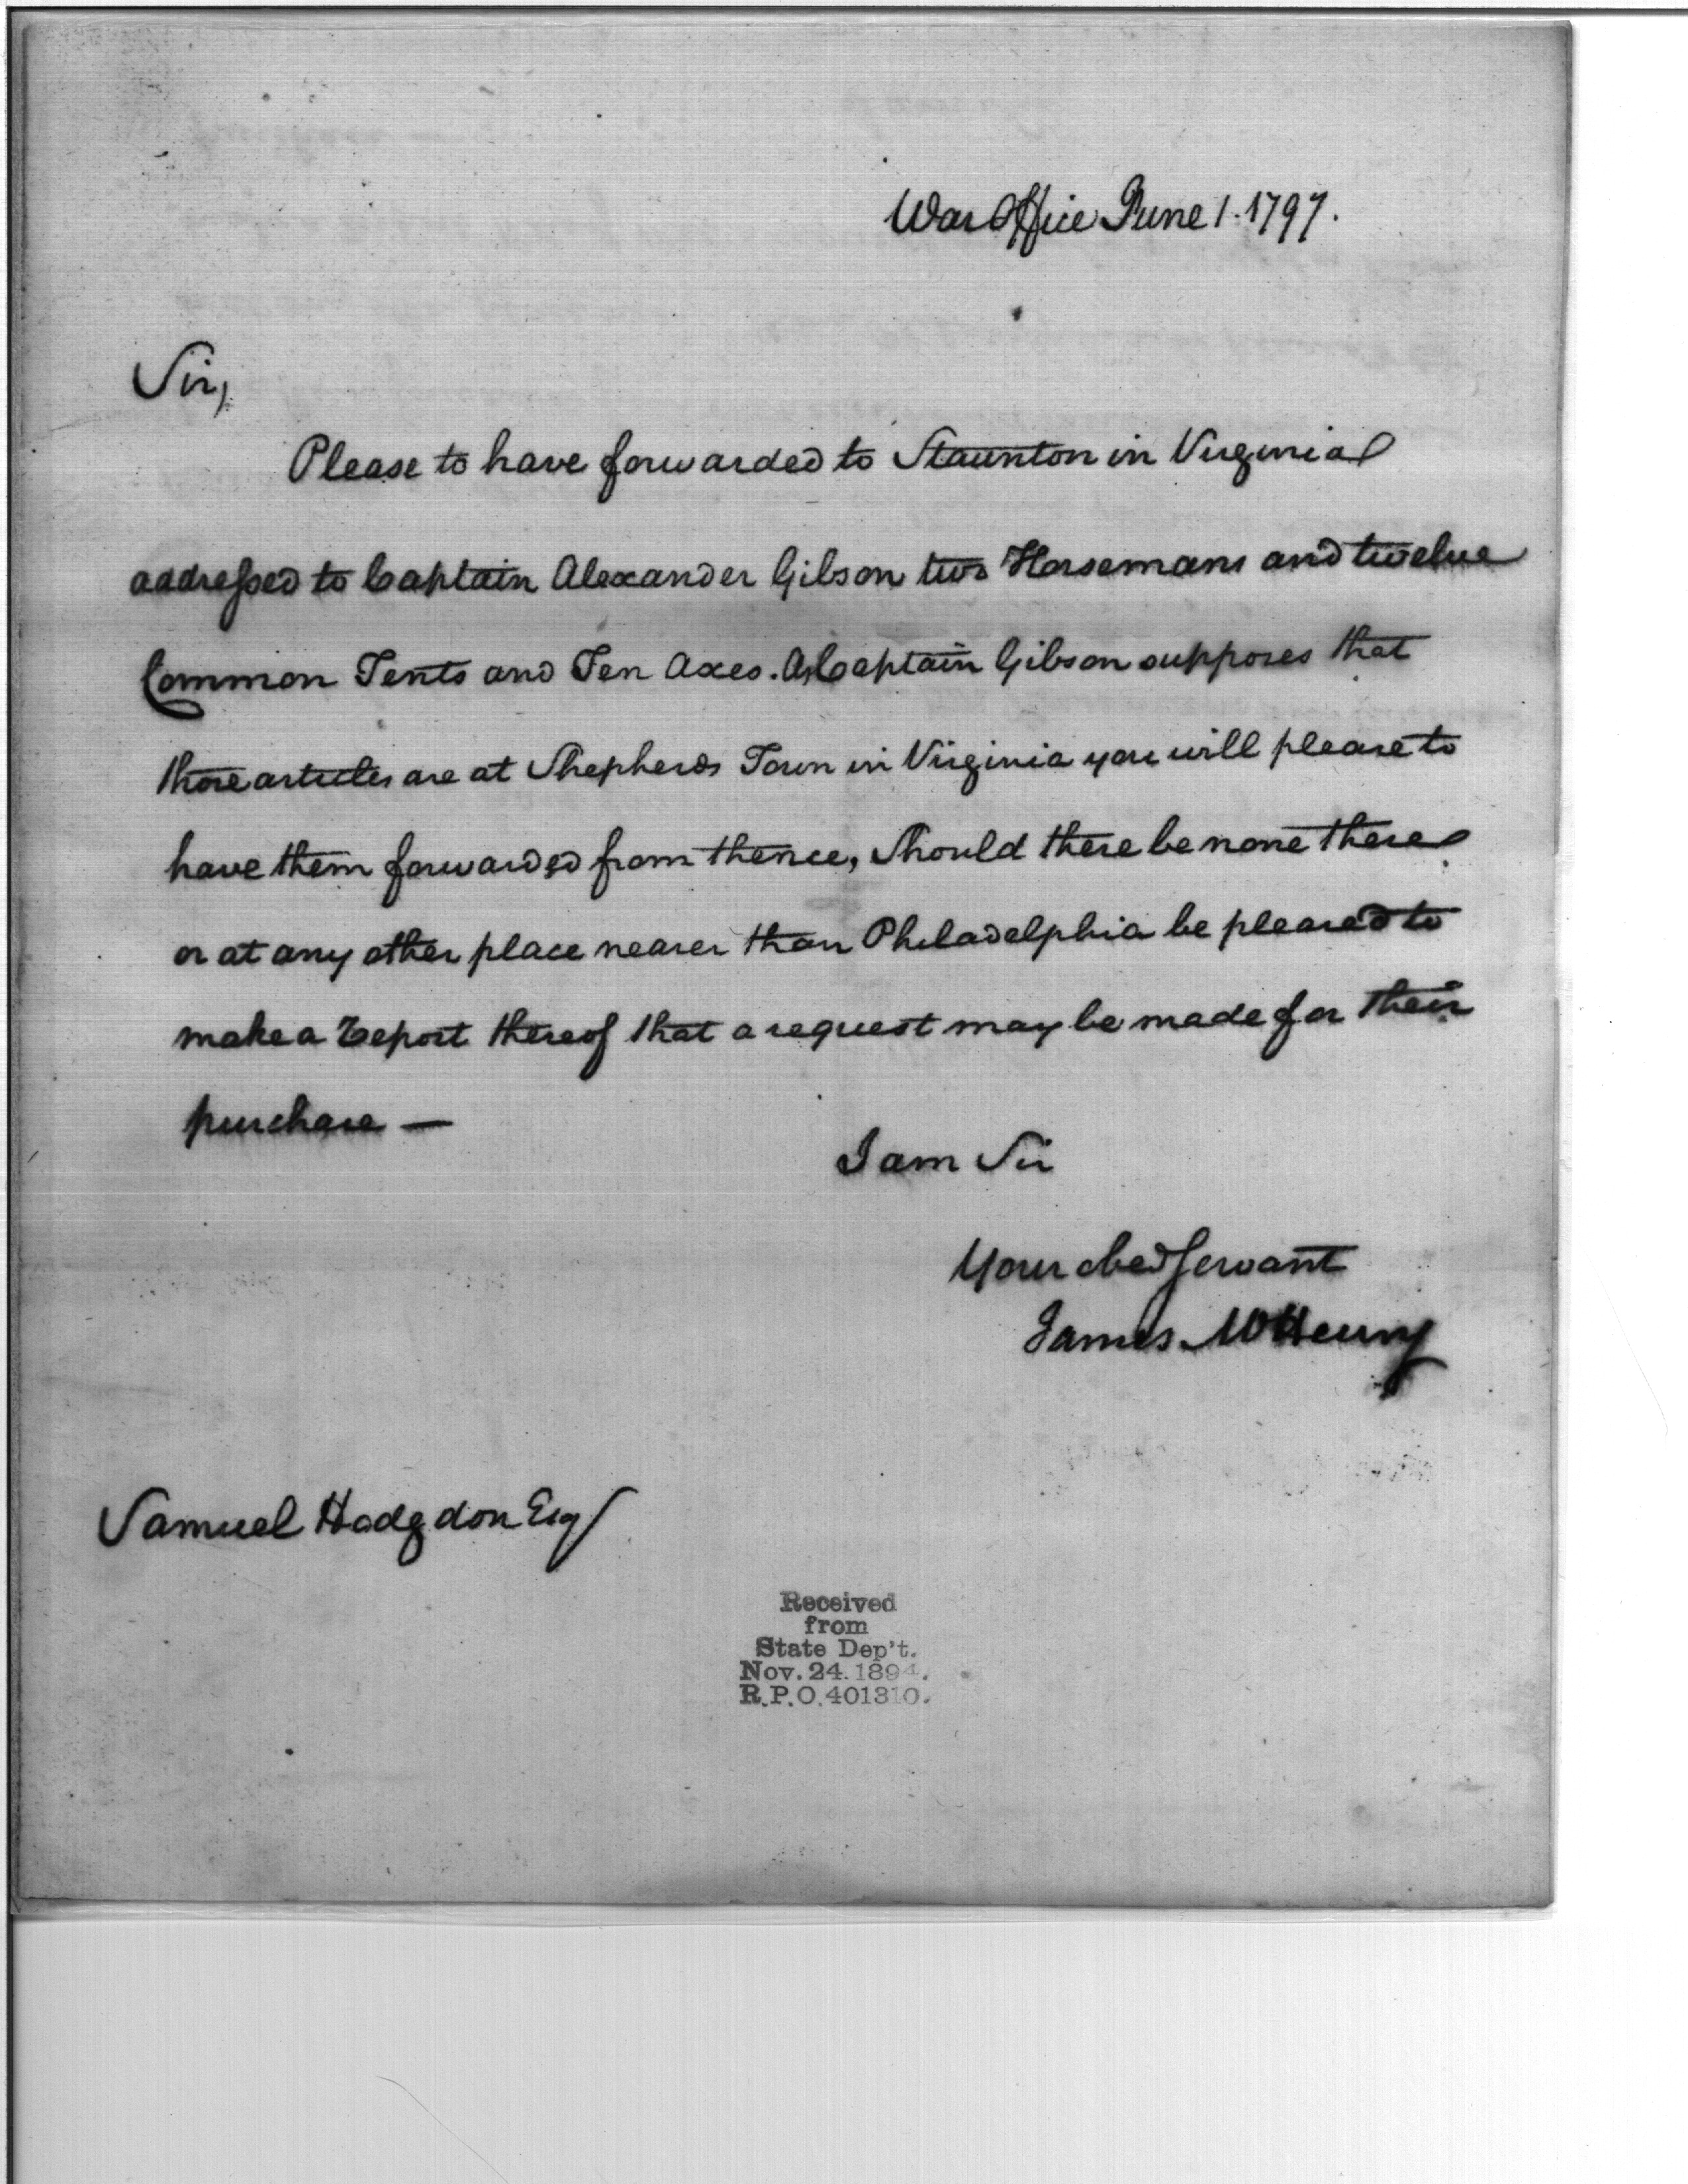 War Office June 1. 1797.
Sir,
Please to have forwarded to Staunton in Virginia
addressed to Captain Alexander Gibson two Horsemans and twelve
Common Tents and Ten Axes. As Captain Gibson supposes that
those articles are at Shepherds Town in Virginia you will please to
have them forwarded from thence, Should there be none there
or at any other place nearer than Philadelphia be pleased to
make a Report thereof that a request may be made for their
purchase —
I am Sir
Your obed Servant
James McHenry
Samuel Hodgdon Esq
Received
from
State Dep't.
Nov. 24. 1894.
R.P.O. 401310.